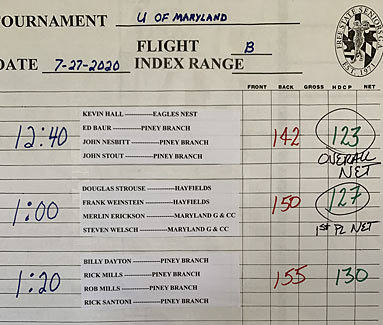 TOURNAMENT U OF MARYLAND
FLIGHT B
DATE 7-27-2020 INDEX RANGE
FREE STATE SENIORS G
EST. 197
FRONT BACK GROSS HDCP NET
KEVIN HALL ------------EAGLES NEST
ED BAUR ------------PINEY BRANCH
12:40 JOHN NESBITT ------------PINEY BRANCH 142 123
JOHN STOUT ------------PINEY BRANCH
OVERALL
NET
DOUGLAS STROUSE ------------HAYFIELDS
1:00 FRANK WEINSTEIN ------------HAYFIELDS 150 127
MERLIN ERICKSON ------------MARYLAND G & CC
STEVEN WELSCH ------------MARYLAND G & CC
1ST PL NET
BILLY DAYTON ------------PINEY BRANCH
1:20 RICK MILLS ------------PINEY BRANCH 155 130
ROB MILLS ------------PINEY BRANCH
RICK SANTONI ------------PINEY BRANCH